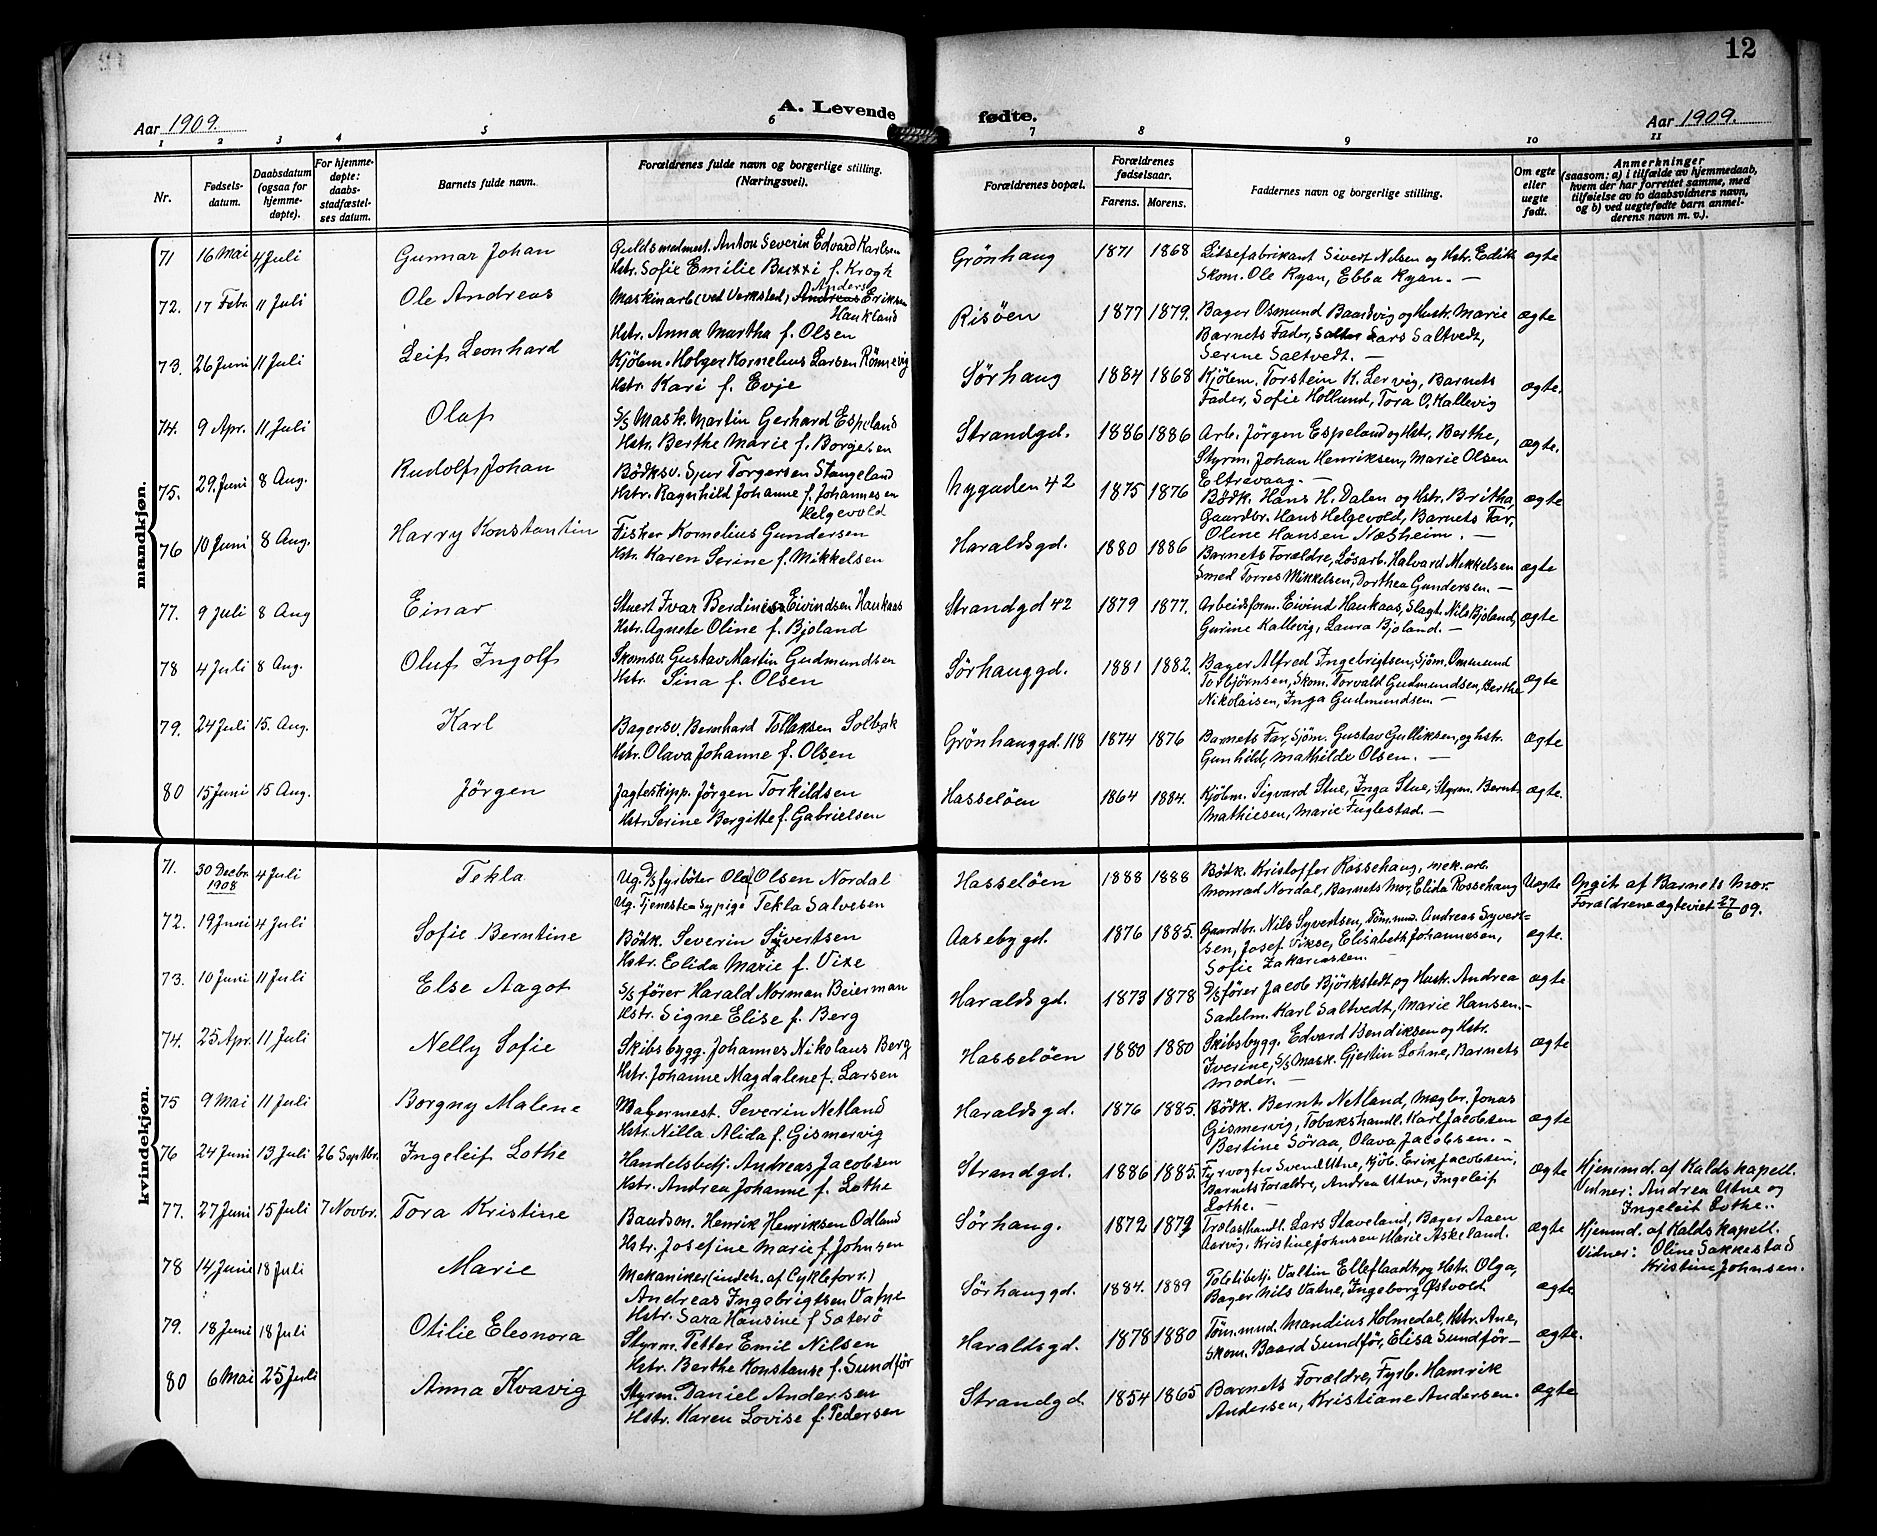 12
A. Levende fødte.
Aar 1909.
Aar 1909.
1 2 3 4 5 6 7 8 9 10 11
Nr.
Fødsels-
datum.
Daabsdatum
(ogsaa for
hjemme-
døpte).
For hjemme-
døpte:
daabs-
stadfæstel-
ses datum.
Barnets fulde navn.
Forældrenes fulde navn og borgerlige stilling.
(Næringsvei).
Forældrenes bopæl.
Forældrenes
fødselsaar.
Farens. Morens.
Faddernes navn og borgerlige stilling.
Om egte
eller
uegte
født.
Anmerkninger
(saasom: a) i tilfælde av hjemmedaab,
hvem der har forrettet samme, med
tilføielse av to daabsvidners navn,
og b) ved uegtefødte barn anmel-
derens navn m. v.).
mandkjøn.
71 16 Mai 4 Juli Gunnar Johan Guldsmedmest. Anton Severin Edvard Karlsen Grönhaug 1871 1868 Litsefabrikant Sivert Nilsen og Hstr. Edith ægte
Hstr. Sofie Emilie Buzzi f. Krogh Skom. Ole Ryan, Ebba Ryan. —
72. 17 Febr. 11 Juli Ole Andreas Maskinarb. (ved Verksted) Andreas Anders Eriksen Risöen 1877 1879. Bager Osmund Baardvig og Hustr. Marie ægte
Haukland
Hstr. Anna Martha f. Olsen Barnets Fader, Lars Saltvedt,
Serine Saltvedt. —
73. 26 Juni 11 Juli Leif Leonhard Kjölem. Holger Kornelius Larsen Rönnevig Sörhaug 1884 1868 Kjölem. Torstein K. Lervig, Barnets ægte.
Hstr. Kari f. Evje Fader, Sofie Holland, Tora O. Kallevig
74. 9 Apr. 11 Juli Olaf S/S Mask. Martin Gerhard Espeland Strandgd. 1886 1886 Arb. Jörgen Espeland og Hstr. Berthe, ægte.
Hstr. Berthe Marie f. Borgesen Styrm. Johan Henriksen, Marie Olsen
Eltrevaag. —
75. 29. Juni 8 Aug. Rudolf Johan Bödksv. Sjur Torgersen Stangeland Nygaden 42 1875 1876 Bödk. Hans H. Dalen og Hstr. Britha, ægte
Hstr. Ragnhild Johanne f. Johannesen Gaardbr. Hans Helgevold, Barnets Far,
Helgevold Oline Hansen Næsheim. —
76 10 Juni 8 Aug. Harry Konstantin Fisker Kornelius Gundersen Haraldsgd. 1880 1886 Barnets Forældre, Lösarb. Halvard Mikkelsen ægte
Hstr. Karen Serine f. Mikkelsen Smed Torres Mikkelsen, Dorthea Gundersen. —
77. 9 Juli 8 Aug Einar Stuert Ivar Berdines Eivindsen Haukaas Strandgd 42 1879 1877. Arbeidsform. Eivind Haukaas, Slagt. Nils Bjoland, ægte
Hstr. Agnete Oline f. Bjoland Gurine Kallevig, Laura Bjoland. —
78 4 Juli 8 Aug. Oluf Ingolf Skomsv. Gustav Martin Gudmundsen Sörhauggd. 1881 1882. Bager Alfred Ingebrigtsen, Sjöm. Ommund ægte
Hstr. Sina f. Olsen Torbjörnsen, Skom. Torvald Gudmundsen, Berthe
Nikolaisen, Inga Gudmundsen. —
79. 24 Juli 15. Aug. Karl Bagersv. Bernhard Tollaksen Solbak Grönhauggd. 118 1874 1876 Barnets Far, Sjöm. Gustav Gulliksen, og Hstr. ægte
Hstr. Olava Johanne f. Olsen Gunhild, Mathilde Olsen. —
80 15 Juni 15 Aug. Jörgen Jagteskipp. Jörgen Torkildsen Hasselöen 1864 1884. Kjölem. Sigvard Stue, Inga Stue, Styrm. Bernt ægte.
Hstr. Serine Bergitte f. Gabrielsen Mathiesen, Marie Fuglestad. —
kvindekjøn.
71. 30 Decbr. 1908 4 Juli Tekla Ug. D/S fyrböter Olaf Olsen Nordal Hasselöen 1888 1888 Bödk. Kristoffer Rossehaug, mek. arb. Uægte Opgit af Barnets Mor.
Ug. Tjeneste Sypige Tekla Salvesen Monrad Nordal, Barnets Mor, Elida Rossehaug Forældrene ægteviet 27/6 09.
72. 19 Juni 4 Juli Sofie Berntine Bödk. Severin Syvertsen Aasebygd. 1876 1885. Gaardbr. Nils Syvertsen, Tömmd. Andreas Syvert- ægte.
Hstr. Elida Marie f. Vixe sen, Josef Vikse, Elisabeth Johannesen,
Sofie Zakariassen.
73. 10 Juni 11 Juli Else Aagot S/S förer Harald Norman Beierman Haraldsgd. 1873 1878 D/S förer Jacob Björkstedt og Hustr. Andrea ægte
Hstr. Signe Elise f. Berg Sadelm. Karl Saltvedt, Marie Hansen. —
74. 25 Apr. 11 Juli Nelly Sofie Skibsbygg. Johannes Nikolaus Berg Hasselöen 1880 1880 Skibsbygg. Edvard Bendiksen og Hstr. ægte
Hstr. Johanne Magdalene f. Larsen Iverine, S/S Mask. Gjertin Lohne, Barnets
Moder. —
75 9 Mai 11 Juli Borgny Malene Malermest. Severin Netland Haraldsgd. 1876 1885. Bödk. Bernt Netland, Mægler. Jonas ægte
Hstr. Nilla Alida f. Gismervig Gismervig, Tobakshandl. Karl Jacobsen
Bertine Söraa, Olava Jacobsen. —
76 24 Juni 13 Juli 26 Septbr. Ingeleif Lothe Handelsbetj. Andreas Jacobsen Strandgd. 1886 1885. Fyrvogter Svend Utne, Kjöb. Erik Jacobsen, ægte Hjemmd. af Kaldskapell.
Hstr. Andrea Johanne f. Lothe Barnets Forældre, Andrea Utne, Ingeleif Vidner: Andrea Utne og
Lothe. — Ingeleif Lothe.
77. 27 Juni 15 Juli 7 Novbr. Tora Kristine Baadsm. Henrik Henriksen Odland Sörhaug. 1872 1879 Trælasthandl. Lars Staveland, Bager Aaen ægte Hjemmd. af Kaldskapell.
Hstr. Josefine Marie f. Johnsen Aarvig, Kristine Johnsen Marie Askeland. Vidner: Oline Sakkestad
Kristine Johnsen.
78 14 Juni 18 Juli Marie Mekaniker (indeh. af Cykleforr.) Sörhauggd. 1884. 1889 Politibetj. Valtin Elleflaadt og Hstr. Olga, ægte
Andreas Ingebrigtsen Vatne Bager Nils Vatne, Ingeborg Östvold
Hstr. Sara Hansine f Sæterö
79. 18 Juni 18 Juli Otilie Eleonora Styrm. Petter Emil Nilsen Haraldsgd. 1878 1880 Tömmmd. Mandius Holmedal, Hstr. Ane, ægte.
Hstr. Berthe Konstanse f. Sundför Skom. Baard Sundför, Elisa Sundför —
80 6 Mai 25 Juli Anna Kvavig Styrm. Daniel Andersen Strandgd 1854 1865 Barnets Forældre, Fyrb. Hamrik ægte
Hstr. Karen Lovise f. Pedersen Andersen, Kristiane Andersen.